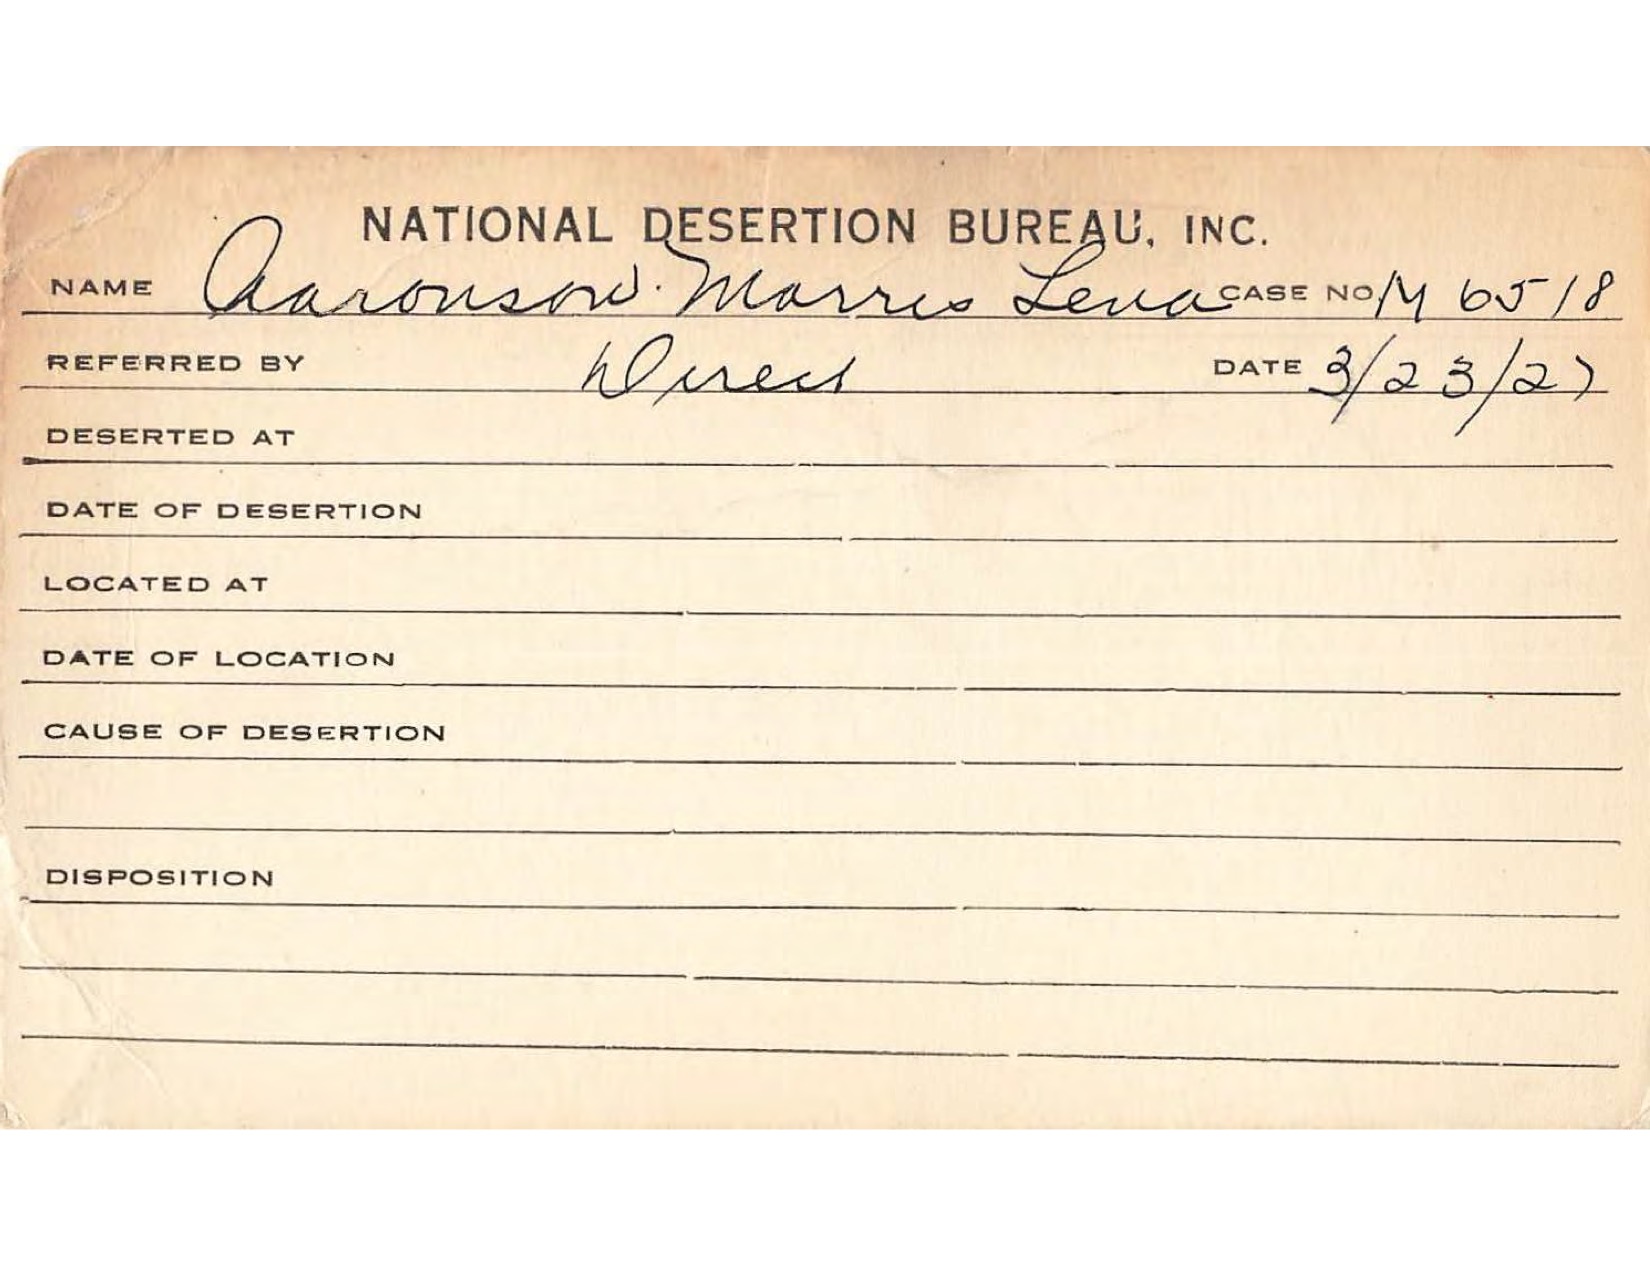 NATIONAL DESERTION BUREAU, INC.
NAME Aaronson Morris Lena CASE NO. M 6518
REFERRED BY Direct DATE 3/23/27
DESERTED AT
DATE OF DESERTION
LOCATED AT
DATE OF LOCATION
CAUSE OF DESERTION
DISPOSITION